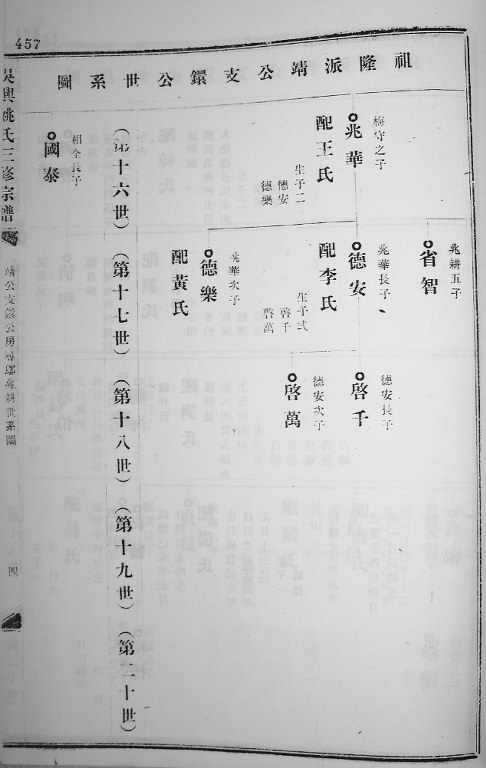 457
祖隆派靖公支鐶公世系圖
兆耕五子
省智
梅守之子
兆華
配王氏
生子二
德安
德樂
兆華長子
德安
配李氏
生子弍
啓千
啓萬
德安長子
啓千
德安次子
啓萬
兆華次子
德樂
配黃氏
(第十六世)(第十七世)(第十八世)(第十九世)(第二十世)
相全長子
國泰
吳興姚氏三修宗譜
靖公支鐶公房
兆耕世系圖
四